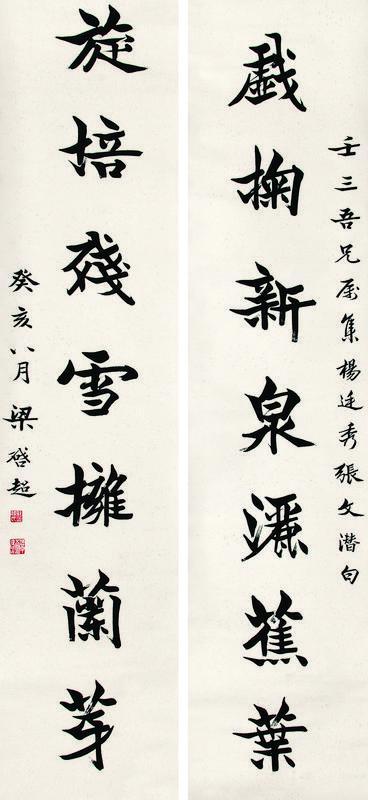 壬三吾兄屬集楊廷秀張文潛句
戲掬新泉灑蕉葉
旋培殘雪擁蘭芽
癸亥八月梁啓超